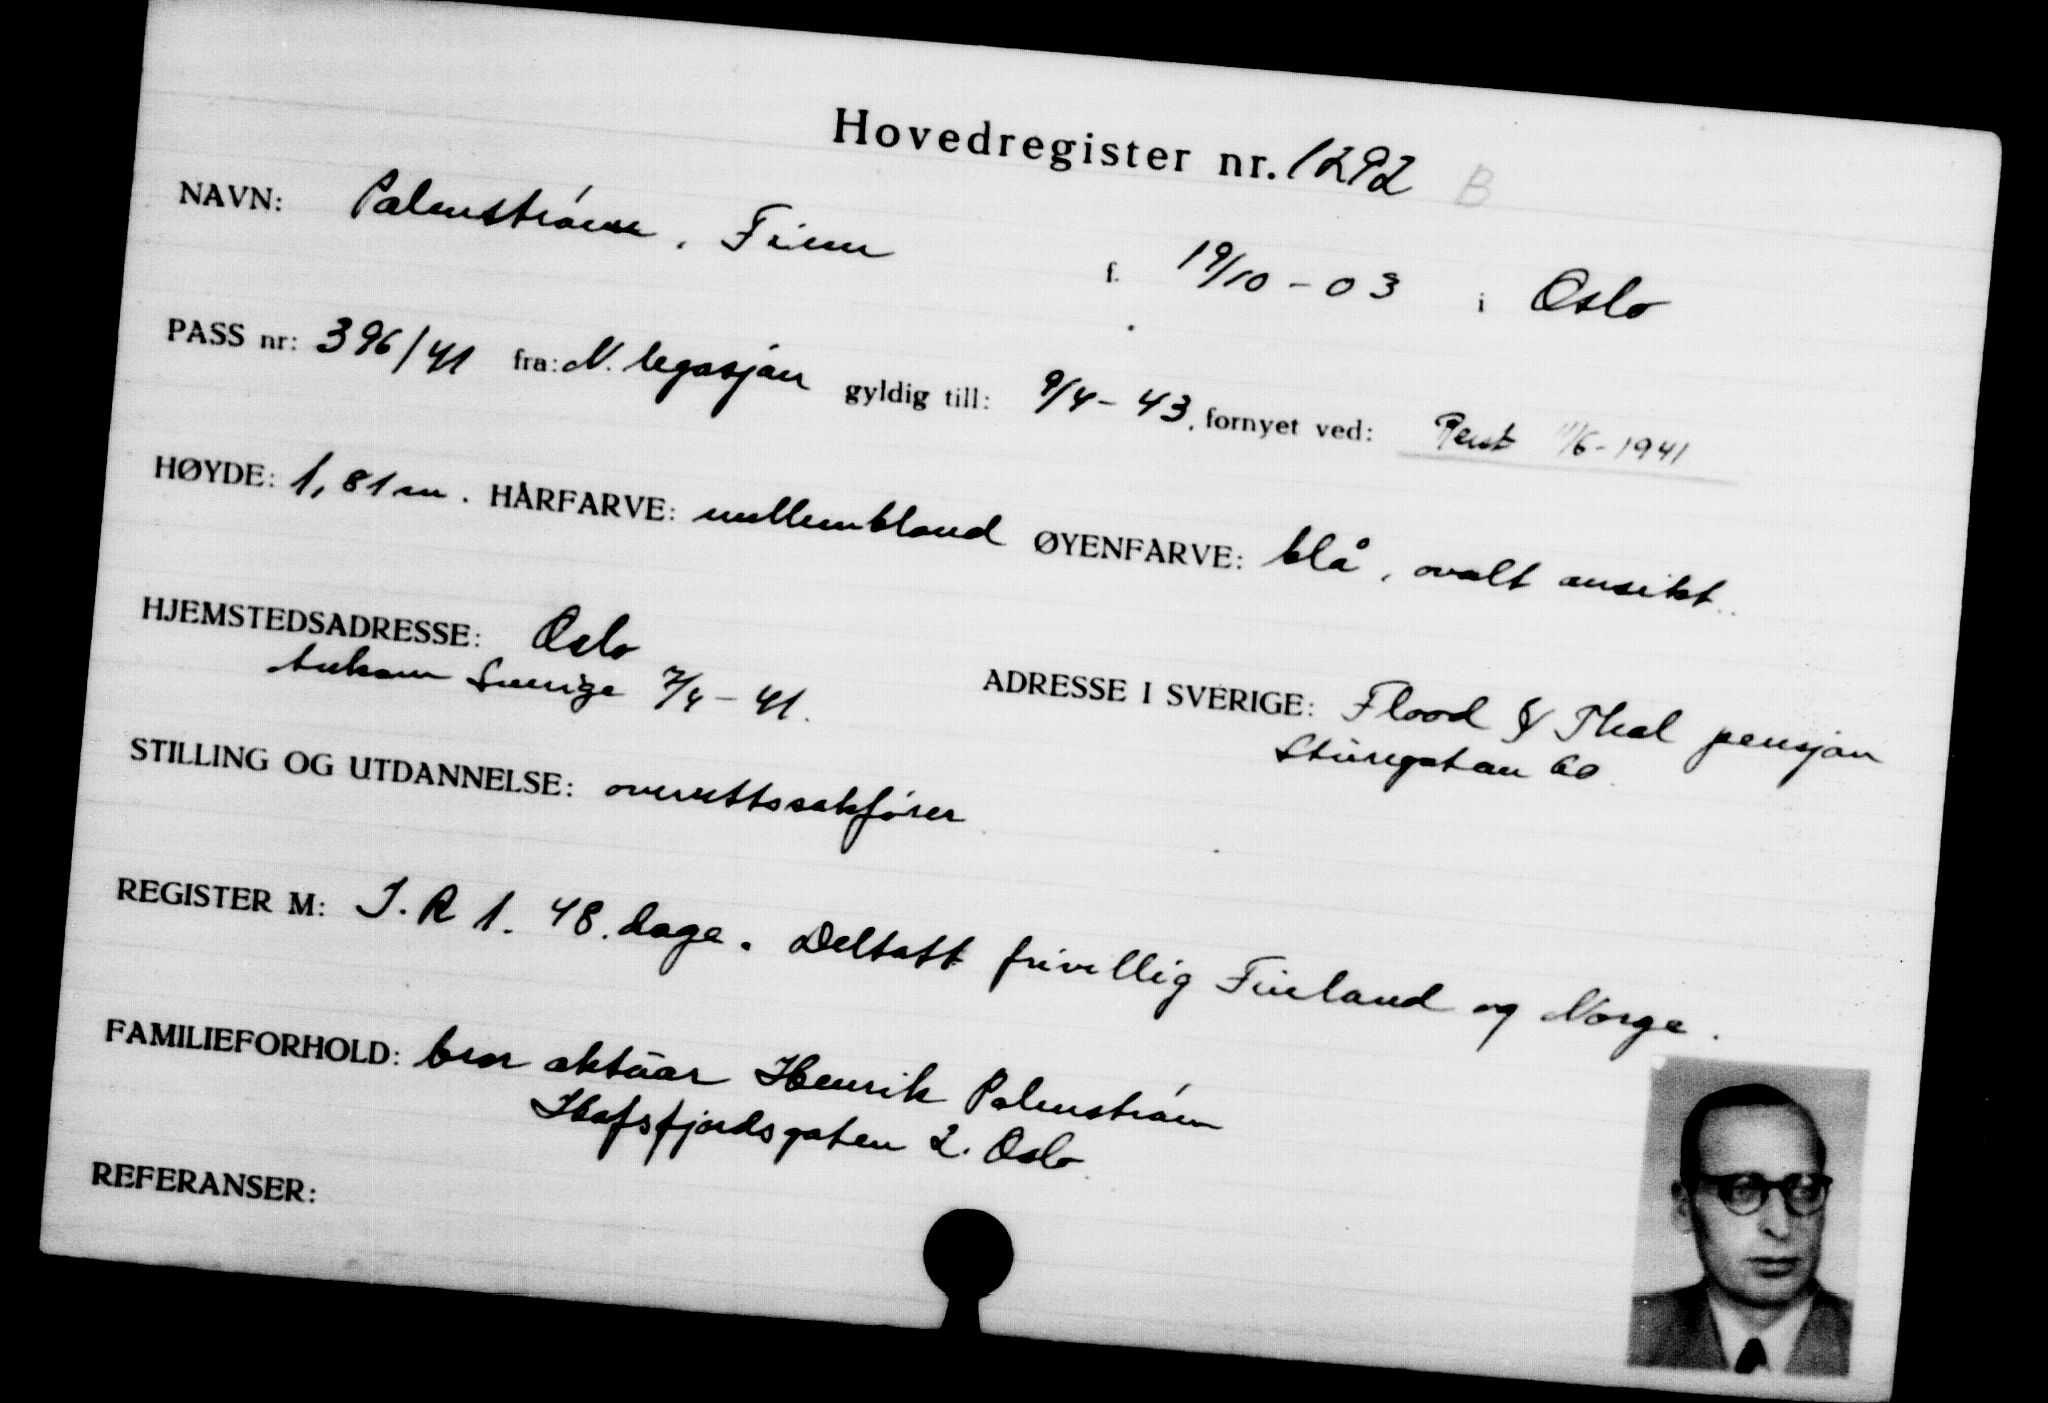 Hovedregister nr. 1292 B
NAVN: Palmstrøm, Finn f. 19/10 - 03 i Oslo
PASS nr: 396/41 fra: N. legasjon gyldig till: 9/4 - 43, fornyet ved: 11/6 - 1941
HØYDE: 1,81 m. HÅRFARVE: mellemblond ØYENFARVE: blå, ovalt ansikt.
HJEMSTEDSADRESSE: Oslo ADRESSE I SVERIGE: Flood & Thal pensjon
ankom Sverige 7/4 - 41. Sturegatan 60
STILLING OG UTDANNELSE: overrettssakfører
REGISTER M: I. R 1. 48. dage. Deltatt frivillig Finland og Norge.
FAMILIEFORHOLD: bror aktuar Henrik Palmstrøm
Hafsfjordsgaten 2. Oslo
REFERANSER: